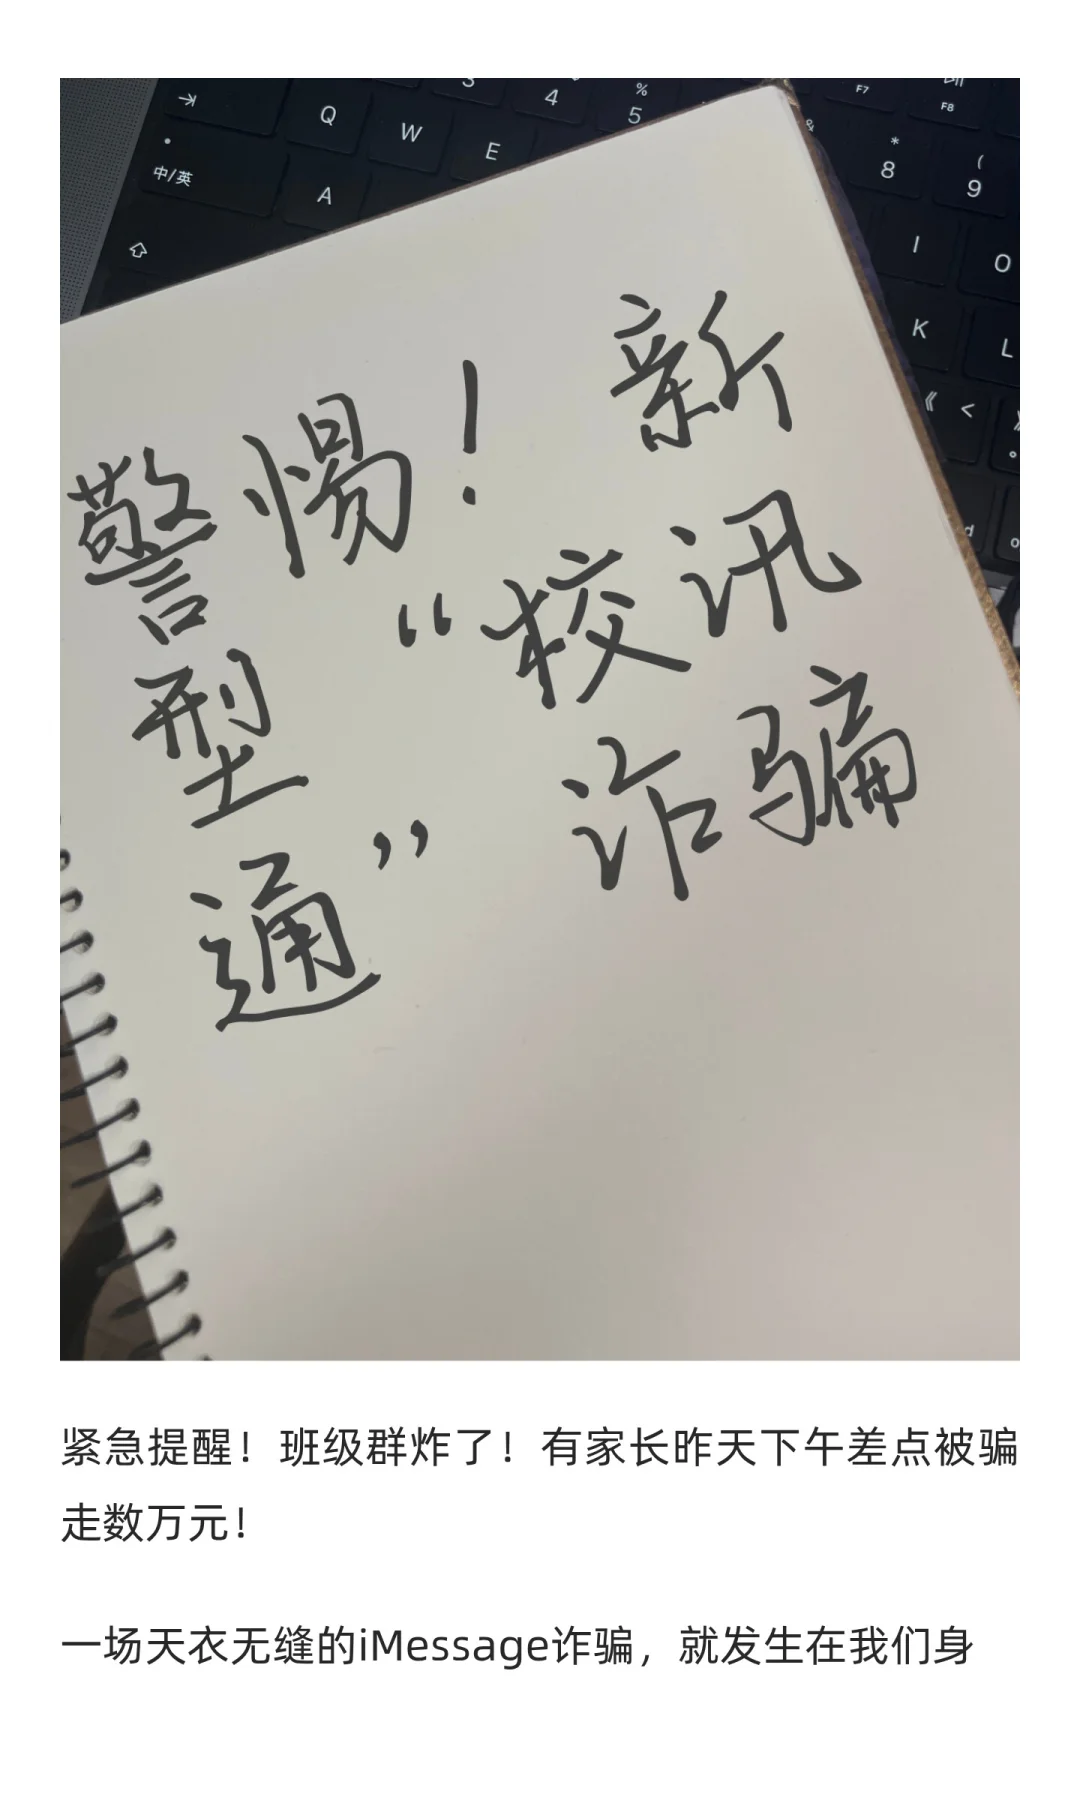 3
4
%
5
F7
F8
Q
W
E
&
*
8
(
9
中/英
A
I
O
K
L
《 <
》
。
d
警惕！新
型“校讯
通”诈骗
紧急提醒！班级群炸了！有家长昨天下午差点被骗
走数万元！
一场天衣无缝的iMessage诈骗，就发生在我们身